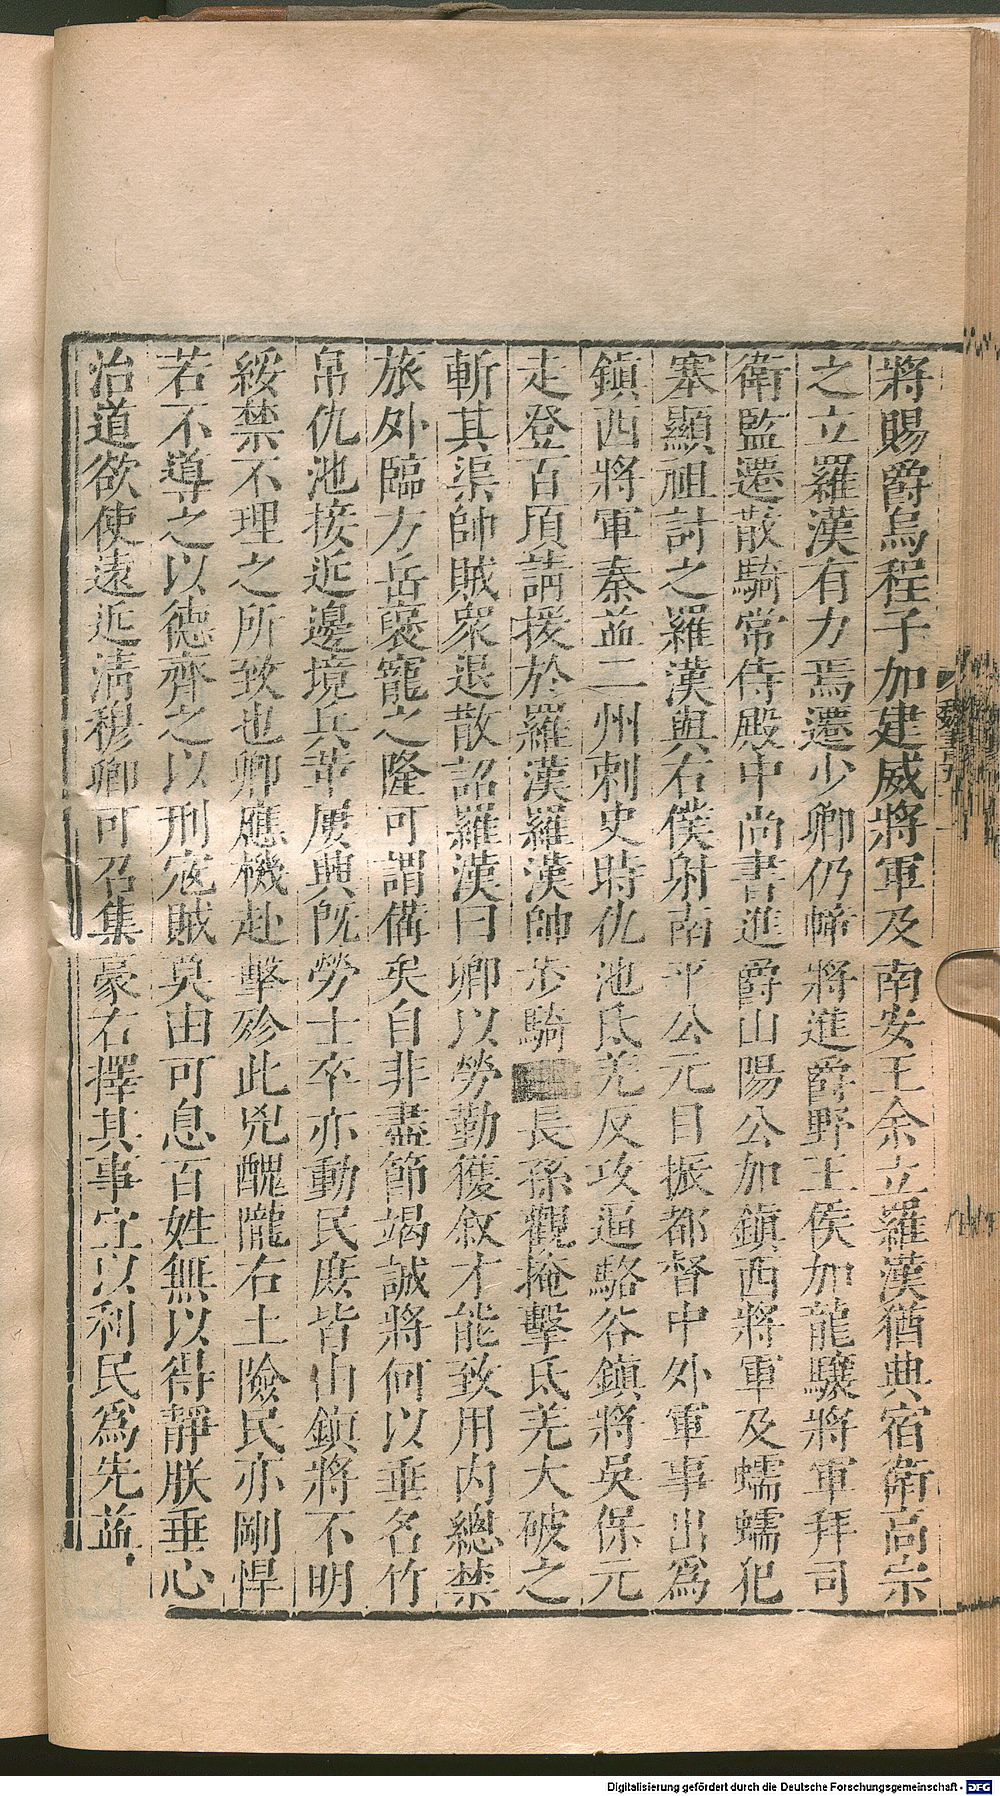 將賜爵烏程子加建威將軍及南安王余立羅漢猶典宿衛高宗
之立羅漢有力焉遷少卿仍幢將進爵野王侯加龍驤將軍拜司
衛監遷散騎常侍殿中尚書進爵山陽公加鎮西將軍及蠕蠕犯
塞顯祖討之羅漢與右僕射南平公元目振都督中外軍事出為
鎮西將軍秦益二州刺史時仇池氐羌反攻逼駱谷鎮將吳保元
走登百頃請援於羅漢羅漢帥步騎長孫觀掩擊氐羌大破之
斬其渠帥賊眾退散詔羅漢曰卿以勞勤獲敘才能致用內總禁
旅外臨方岳褒寵之隆可謂備矣自非盡節竭誠將何以垂名竹
帛仇池接近邊境兵革屢興既勞士卒亦動民庶皆由鎮將不明
綏禁不理之所致也卿應機赴擊殄此兇醜隴右土險民亦剛悍
若不導之以德齊之以刑寇賊莫由可息百姓無以得靜朕垂心
治道欲使遠近清穆卿可召集豪右擇其事宜以利民為先益
Digitalisierung gefördert durch die Deutsche Forschungsgemeinschaft - DFG